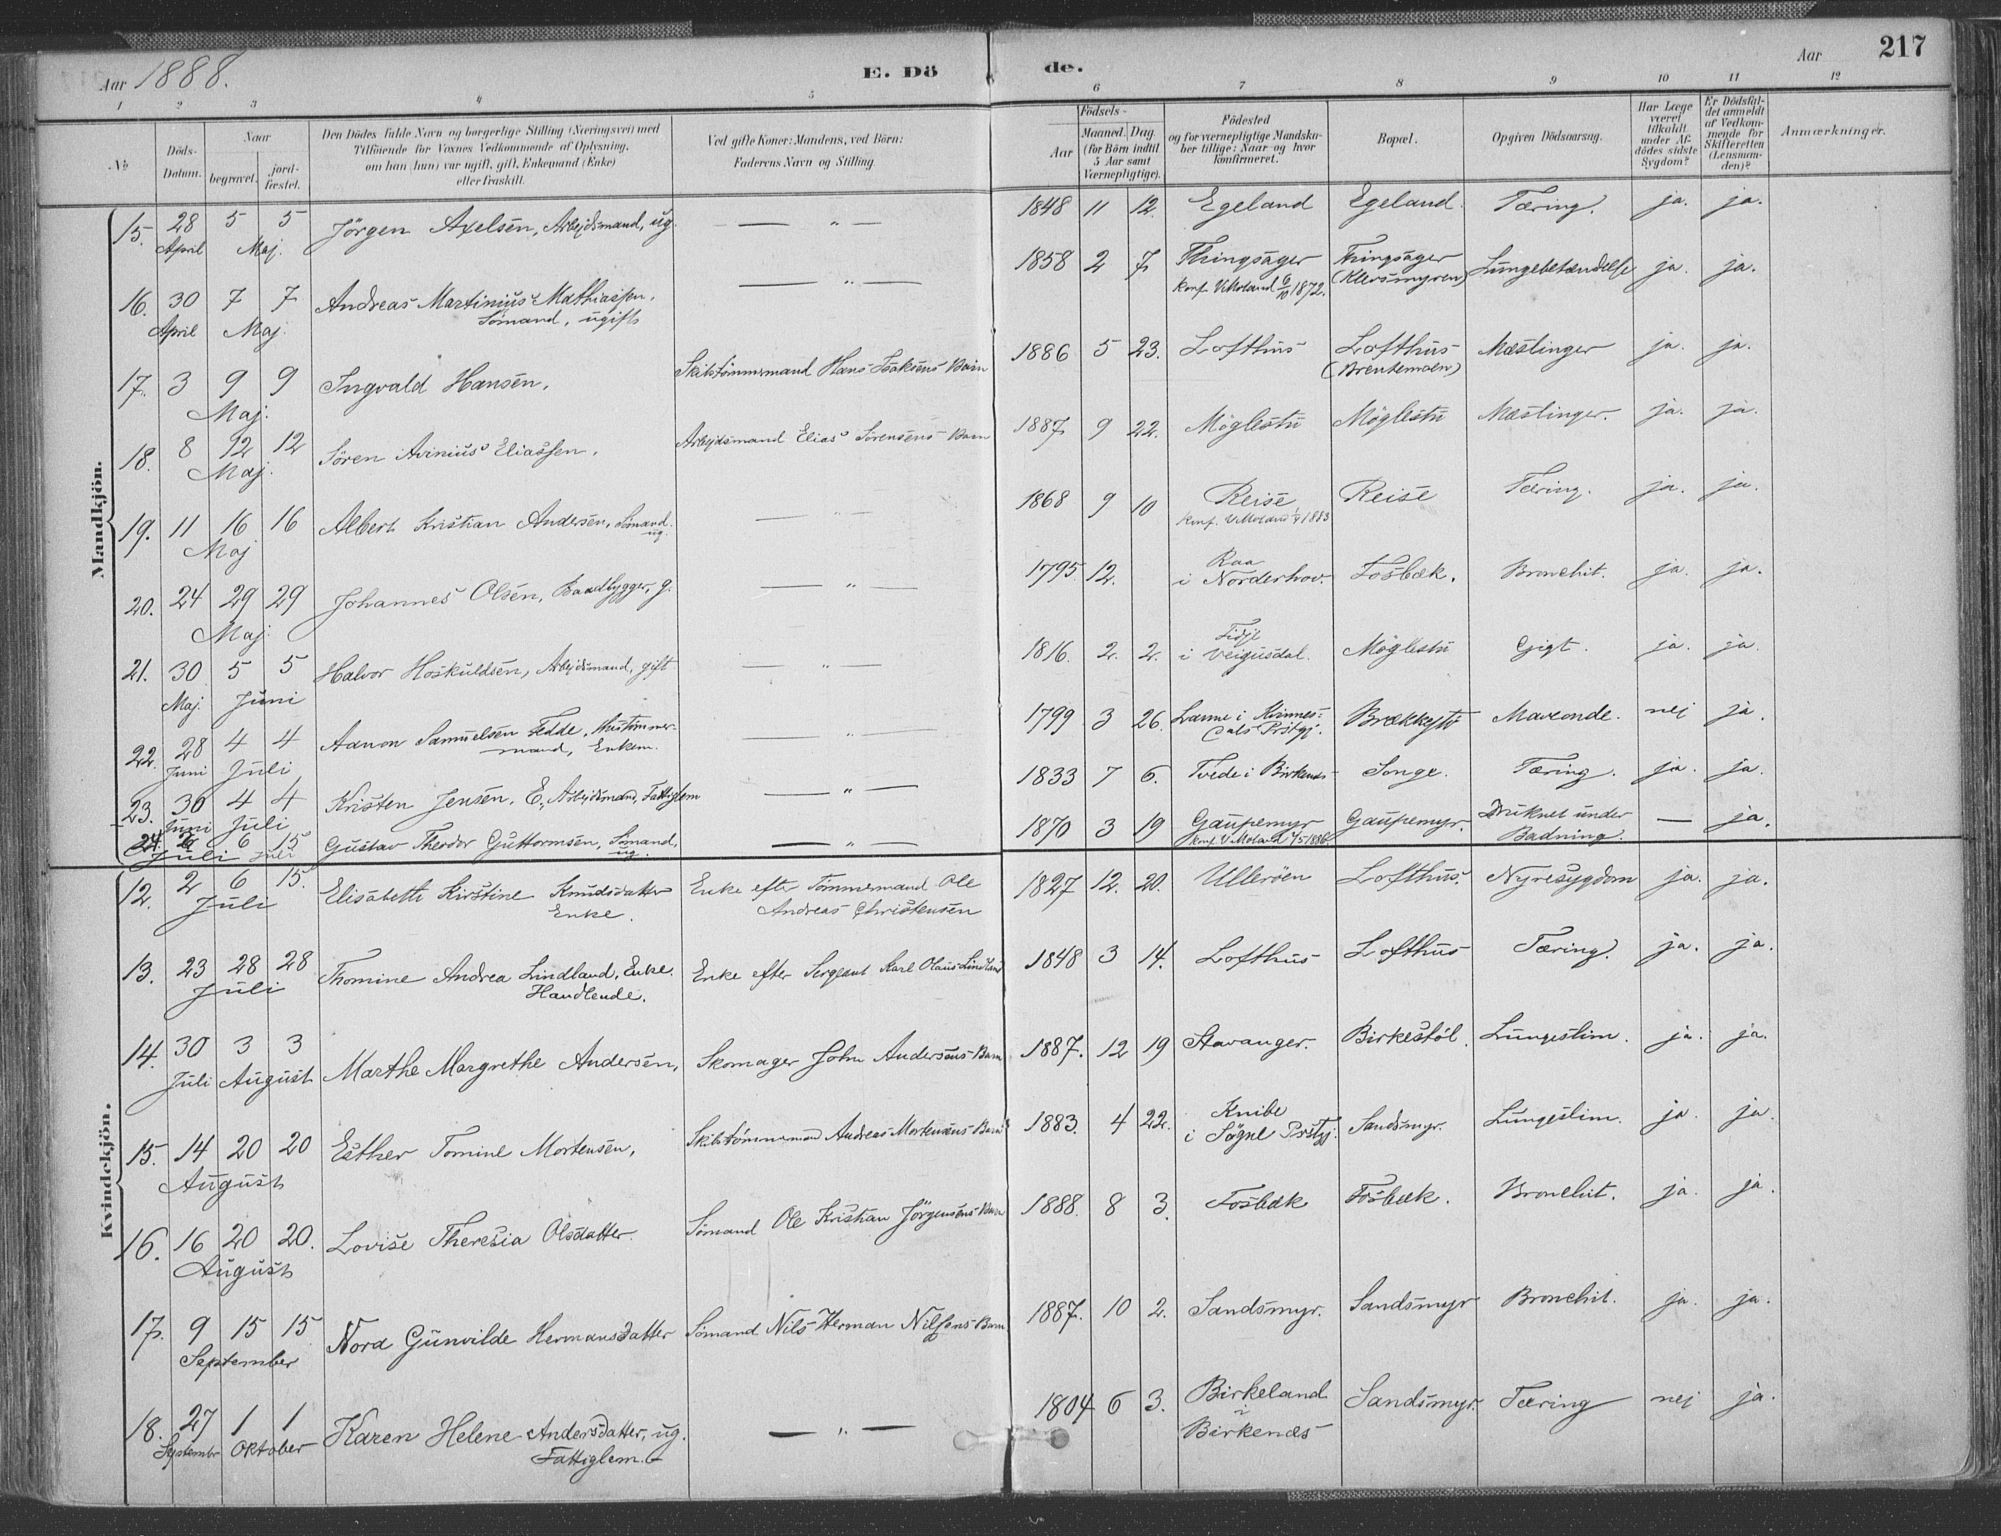 Aar 1888.
E. Döde.
Aar
217
1 2 3 4 5 6 7 8 9 10 11 12
No
Döds-Datum.
Naar
begravet.
jord-fæstet.
Den Dödes fulde Navn og borgerlige Stilling (Næringsvei) med
Tilföiende for Voxnes Vedkommende af Oplysning,
om han (hun) var ugift, gift, Enkemand (Enke)
eller fraskilt.
Ved gifte Koner: Mandens, ved Börn:
Faderens Navn og Stilling.
Födsels-
Aar
Maaned. Dag
(for Börn indtil
5 Aar samt
Værnepligtige).
Födested
og for værnepligtige Mandska-
ber tillige: Naar og hvor
konfirmeret.
Bopæl.
Opgiven Dödsaarsag.
Har Læge
været
tilkaldt
under Af-
dödes sidste
Sygdom?
Er Dödsfal-
det anmeldt
af Vedkom-
mende for
Skifteretten
(Lensman-
den)?
Anmærkninger.
Mandkjön.
15. 28 5 5 Jörgen Axelsen, Arbejdsmand, ug. — " — 1848 11 12. Egeland Egeland. Tæring. ja. ja.
April Maj.
16. 30 7 7 Andreas Martinius Mathiassen, — " — 1858 2 7 Thingsager Thingsager Lungebetændelse ja. ja.
April Maj. Sömand, ugift konf. V. Moland 6/10 1872. (Klevsmyren)
17. 3 9 9 Ingvald Hansen, Skibstömmermand Hans Isaksens Barn 1886 5 23. Lofthus Lofthus Mæslinger ja. ja.
Maj. (Brentemoen)
18. 8 12 12 Sören Avinius Eliassen, Arbejdsmand Elias Sörensens Barn 1887 9 22. Möglestü Möglestü Mæslinger. ja. ja.
Maj.
19. 11 16 16 Albert Kristian Andersen, Sömand. — " — 1868 9 10 Reise Reise Tæring. ja. ja.
Maj ug. konf. V. Moland 1883
20. 24 29 29 Johannes Olsen, Baadbygger, g. — " — 1795 12. Raa
i Norderhov. Fosbæk. Bronchit. ja. ja.
Maj.
21. 30 5 5 Halvor Hoskuldsen, Arbejdsmand, gift — " — 1816. 2. 2. Fidje
i Veigusdal. Möglestü Gigt. ja. ja.
Maj. Juni
22. 28 4 4 Aanon Samuelsen Fedde, Hustömmer- — " — 1799 3 26. i Kvinnes-
dals Prstgj. Brækkestö nej ja.
Juni Juli mand, Enkem.
23. 30 4 4 Kristen Jensen, E, Arbejdsmand, Fattiglem — " — 1833 7 6. Tvede i Birkenes Songe. Tæring. ja. ja.
Juni Juli
24. 2 6 15 Gustav Theodor Guttormsen, Sömand, — " — 1870 3 19 Gaupemyr Gaupemyr. Druknet under — ja.
Juli Juli ug. konf. V. Moland Badning.
Kvindekjön.
12. 2 6 15. Elisabeth Kirstine Knudsdatter Enke efter Tömmermand Ole 1827 12. 20. Ulleröen Lofthus. Nyresygdom ja. ja.
Juli Enke. Andreas Christensen
13. 23 28 28 Thomine Andrea Lindland, Enke. Enke efter Sergeant Karl Olaus Lindland 1848 3 14. Lofthus Lofthus Tæring. ja. ja.
Juli Handlende.
14. 30 3 3 Marthe Margrethe Andersen, Skomager John Andersens Barn 1887. 12 19 Stavanger. Birkestöl. Lungeslim. ja. ja.
Juli August
15. 14 20 20 Esther Tomine Mortensen, Skibstömmermand Andreas Mortensens Barn 1883. 4 22. Knibe
i Sögne Prstgj. Sandsmyr. Lungeslim. ja ja.
August
16. 16 20 20. Lovise Theresia Olsdatter. Sömand Ole Kristian Jörgensens Barn 1888. 8 3. Fosbæk Fosbæk. Bronchit. ja. ja.
August
17. 9 15 15. Nora Gunvilde Hermansdatter Sömand Nils Herman Nilsens Barn 1887. 10 2. Sandsmyr. Sandsmyr Bronchit. ja. ja.
September
18. 27 1 1 Karen Helene Andersdatter, ug. — " — 1804 6 3. Birkeland
i
Birkenæs Sandsmyr. Tæring nej ja.
Septembr Oktober Fattiglem.